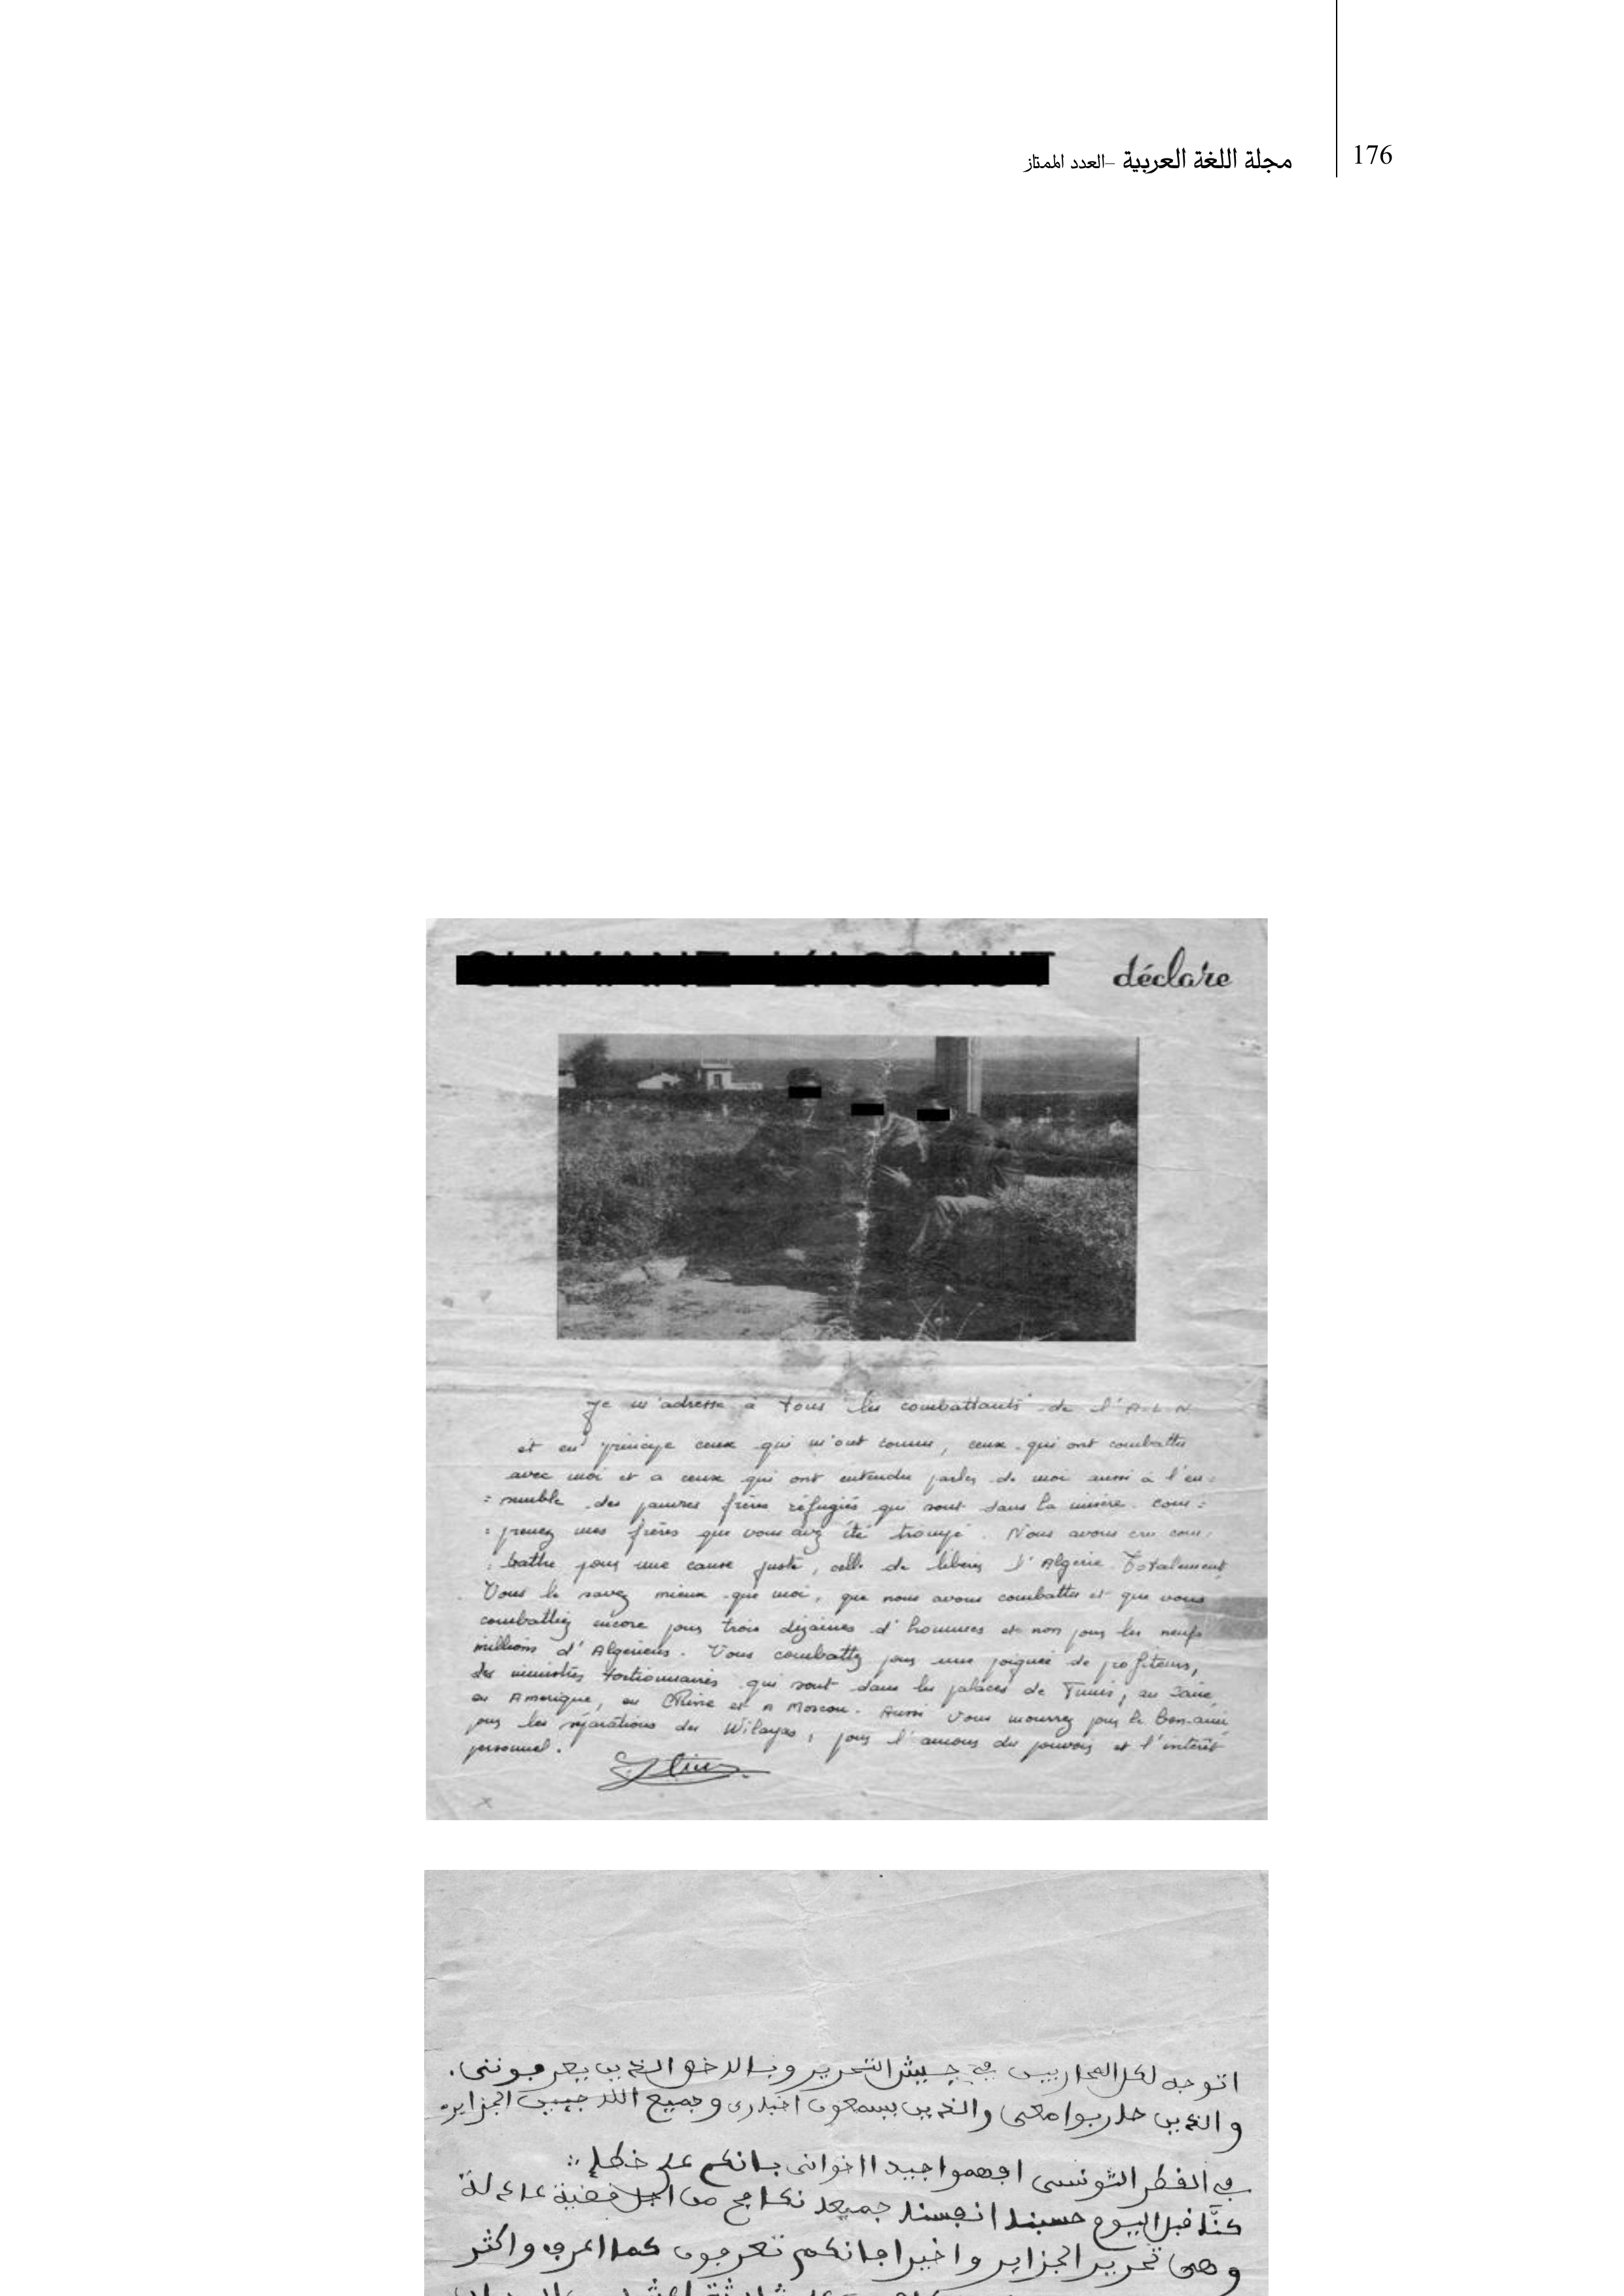 176
مجلة اللغة العربية –العدد الممتاز
déclare
Je m'adresse à tous les combattants de l'A.L.N
et en principe ceux qui m'ont connu, ceux qui ont combattu
avec moi et a ceux qui ont entendu parler de moi aussi à l'en=
=semble des pauvres frères réfugiés qui sont dans la misère. Com=
=prenez mes frères que vous avez été trompé. Nous avons cru com=
=battre pour une cause juste, celle de libérer l'Algérie. Totalement
Vous le savez mieux que moi, que nous avons combattu et que vous
combattiez encore pour trois dizaines d'hommes et non pour les neufs
millions d'Algeriens. Vous combattez pour une poignée de profiteurs,
des ministres tortionnaires qui sont dans les palaces de Tunis, au Caire,
en Amerique, en Chine et a Moscou. Aussi vous mourrez pour le
pour les séparations des Wilayas, pour l'amour du pouvoir et l'interêt
personnel.
اتوجه لكل المحاربين في جيش التحرير وبالاخص الذين يعرفونني.
والذين حاربوا معي والذين يسمعون اخباري وجميع الجزاير
في القطر التونسي افهموا جيدا اخواني بانكم على خطإ
كنَّا قبل اليوم حسبنا انفسنا جميعا نكافح من اجل قضية عادلة
وهي تحرير الجزاير واخيرا فانكم تعرفون كما اعرف واكثر